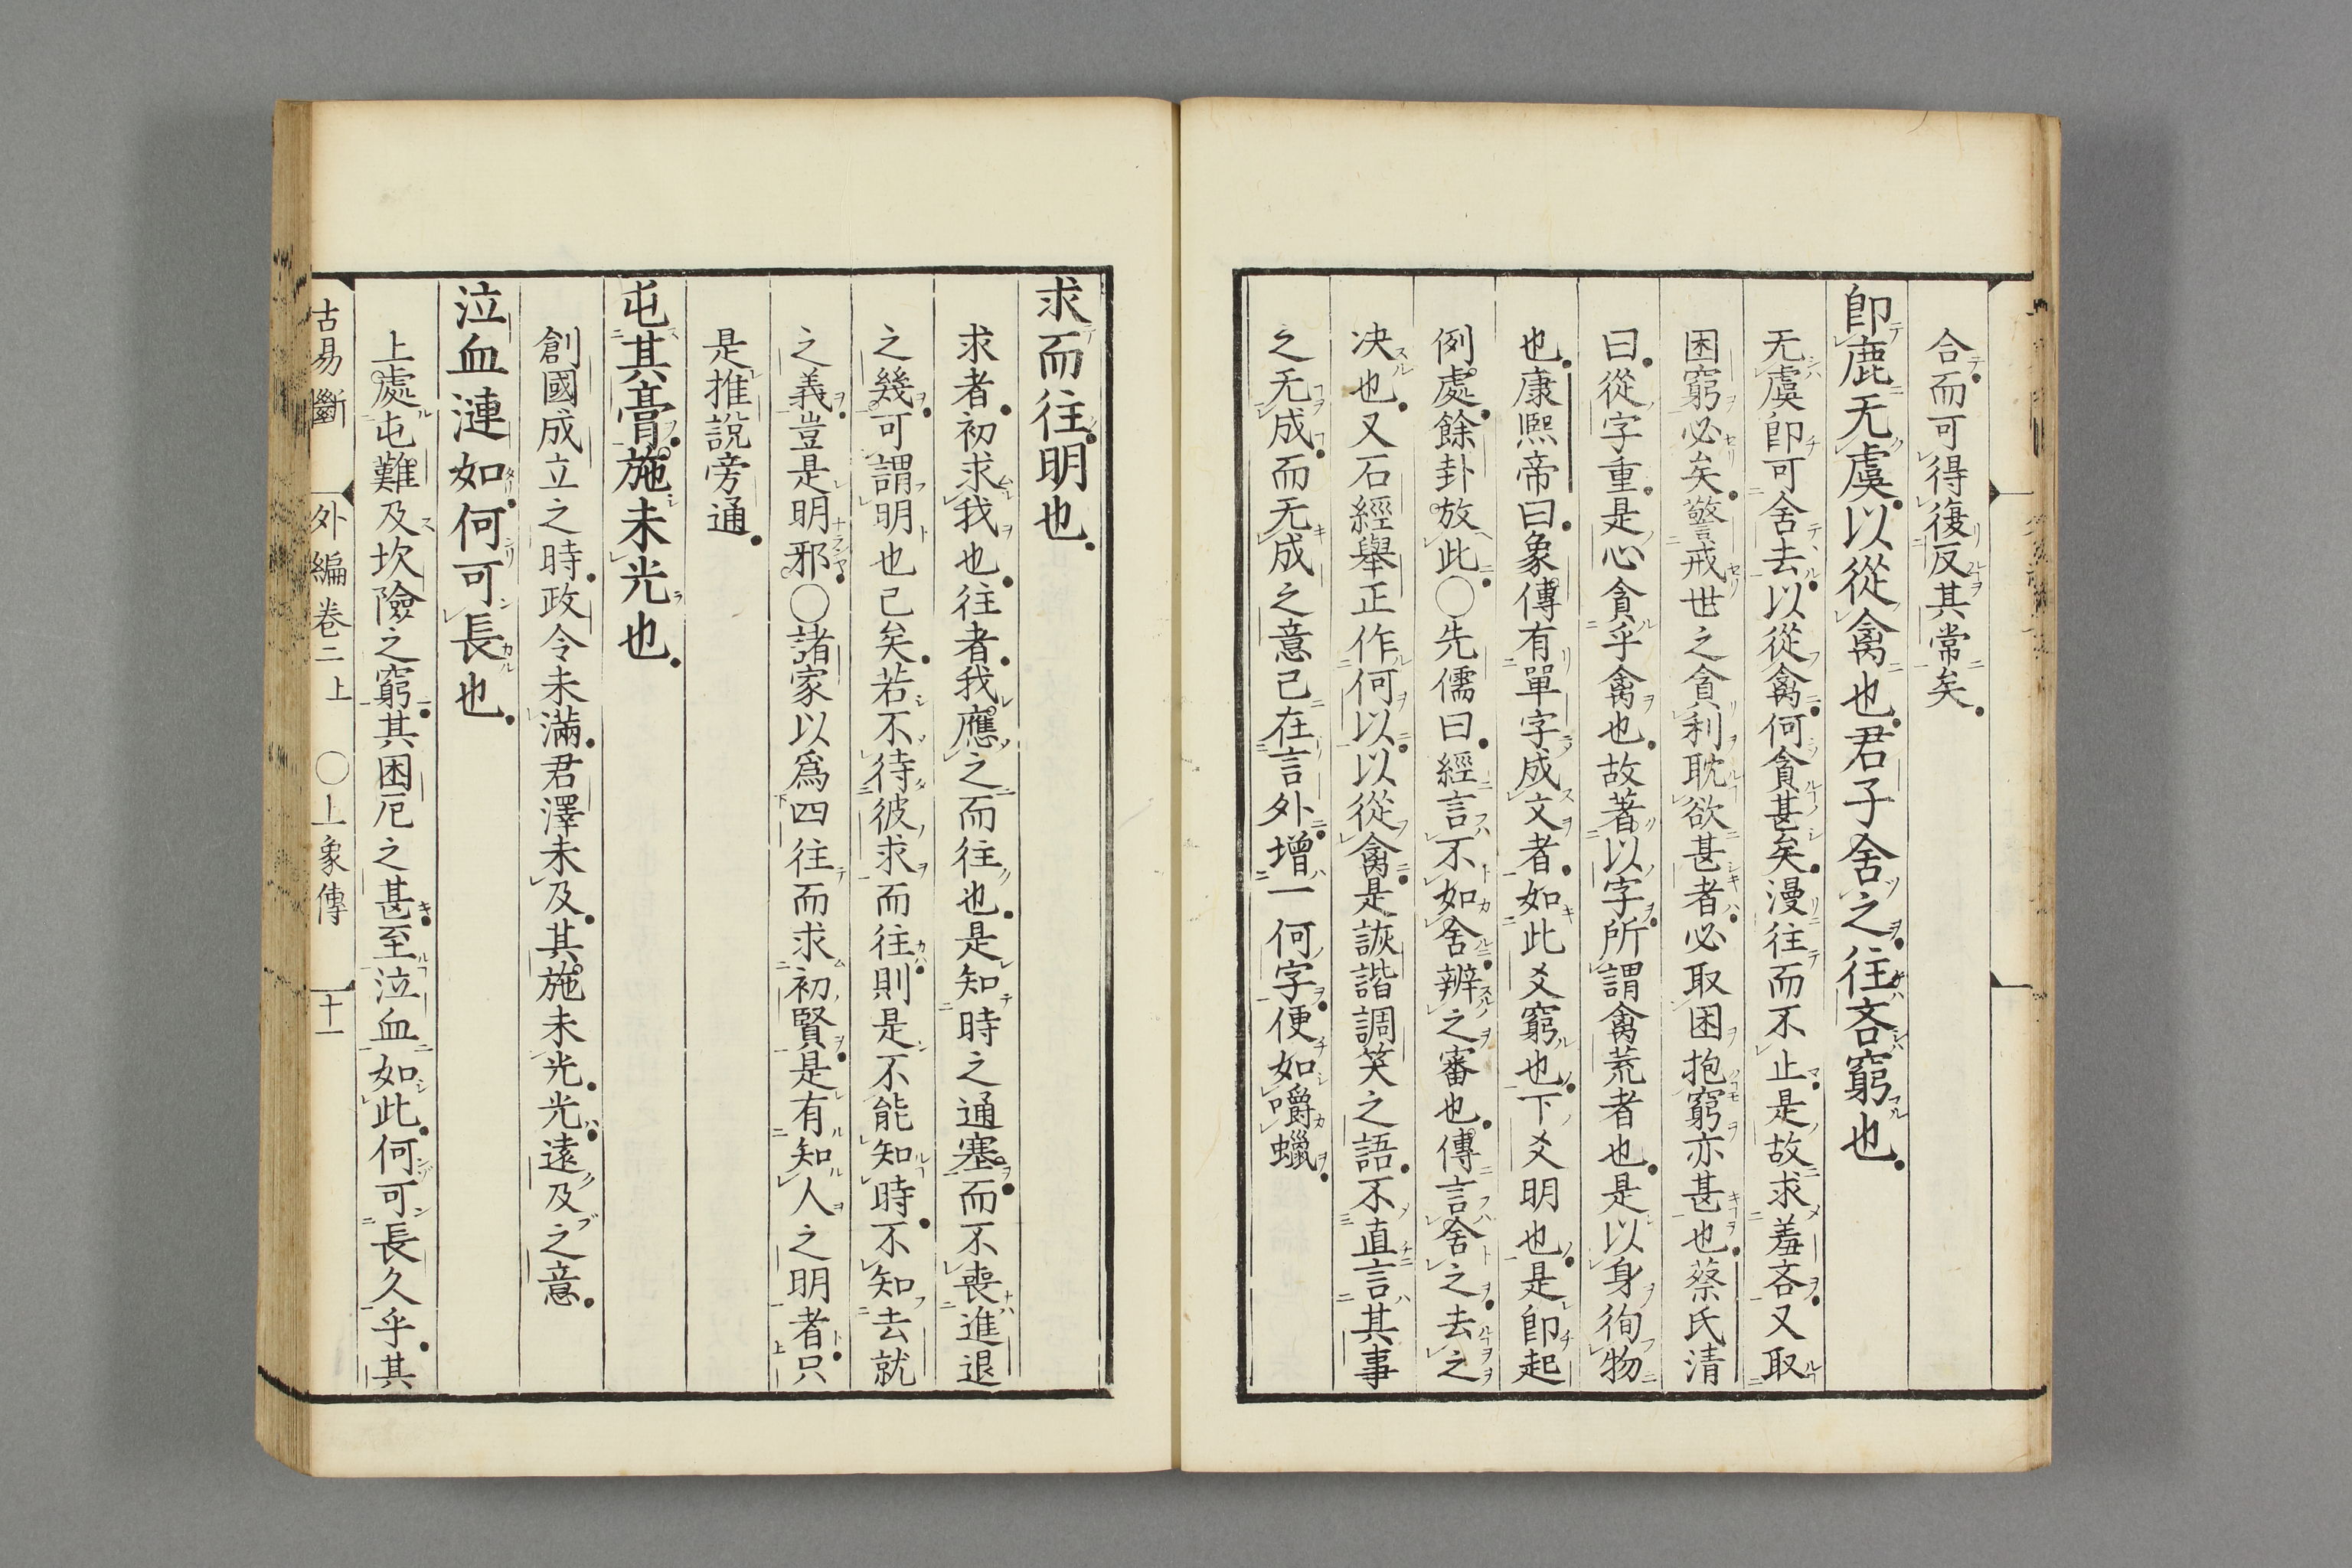 合而可得復反其常矣
卽鹿无虞以從禽也君子舍之往吝窮也
无虞卽可舍去以從禽何貪甚矣漫往而不止是故求羞吝又取
困窮必矣警戒世之貪利耽欲甚者必取困抱窮亦甚也蔡氏清
曰從字重是心貪乎禽也故著以字所謂禽荒者也是以身徇物
也康熙帝曰象傳有單字成文者如此爻窮也下爻明也是卽起
例處餘卦放此○先儒曰經言不如舍辨之審也傳言舍之去之
决也又石經舉正作何以以從禽是詼諧調笑之語不直言其事
之无成而无成之意已在言外增一何字便如嚼蠟
求而往明也
求者初求我也往者我應之而往也是知時之通塞而不喪進退
之幾可謂明也己矣若不待彼求而往則是不能知時不知去就
之義豈是明邪○諸家以爲四往而求初賢是有知人之明者只
是推說旁通
屯其膏施未光也
創國成立之時政令未滿君澤未及其施未光光遠及之意
泣血漣如何可長也
上處屯難及坎險之窮其困厄之甚至泣血如此何可長久乎其
古易斷 外編卷二上 ○上象傳 十一